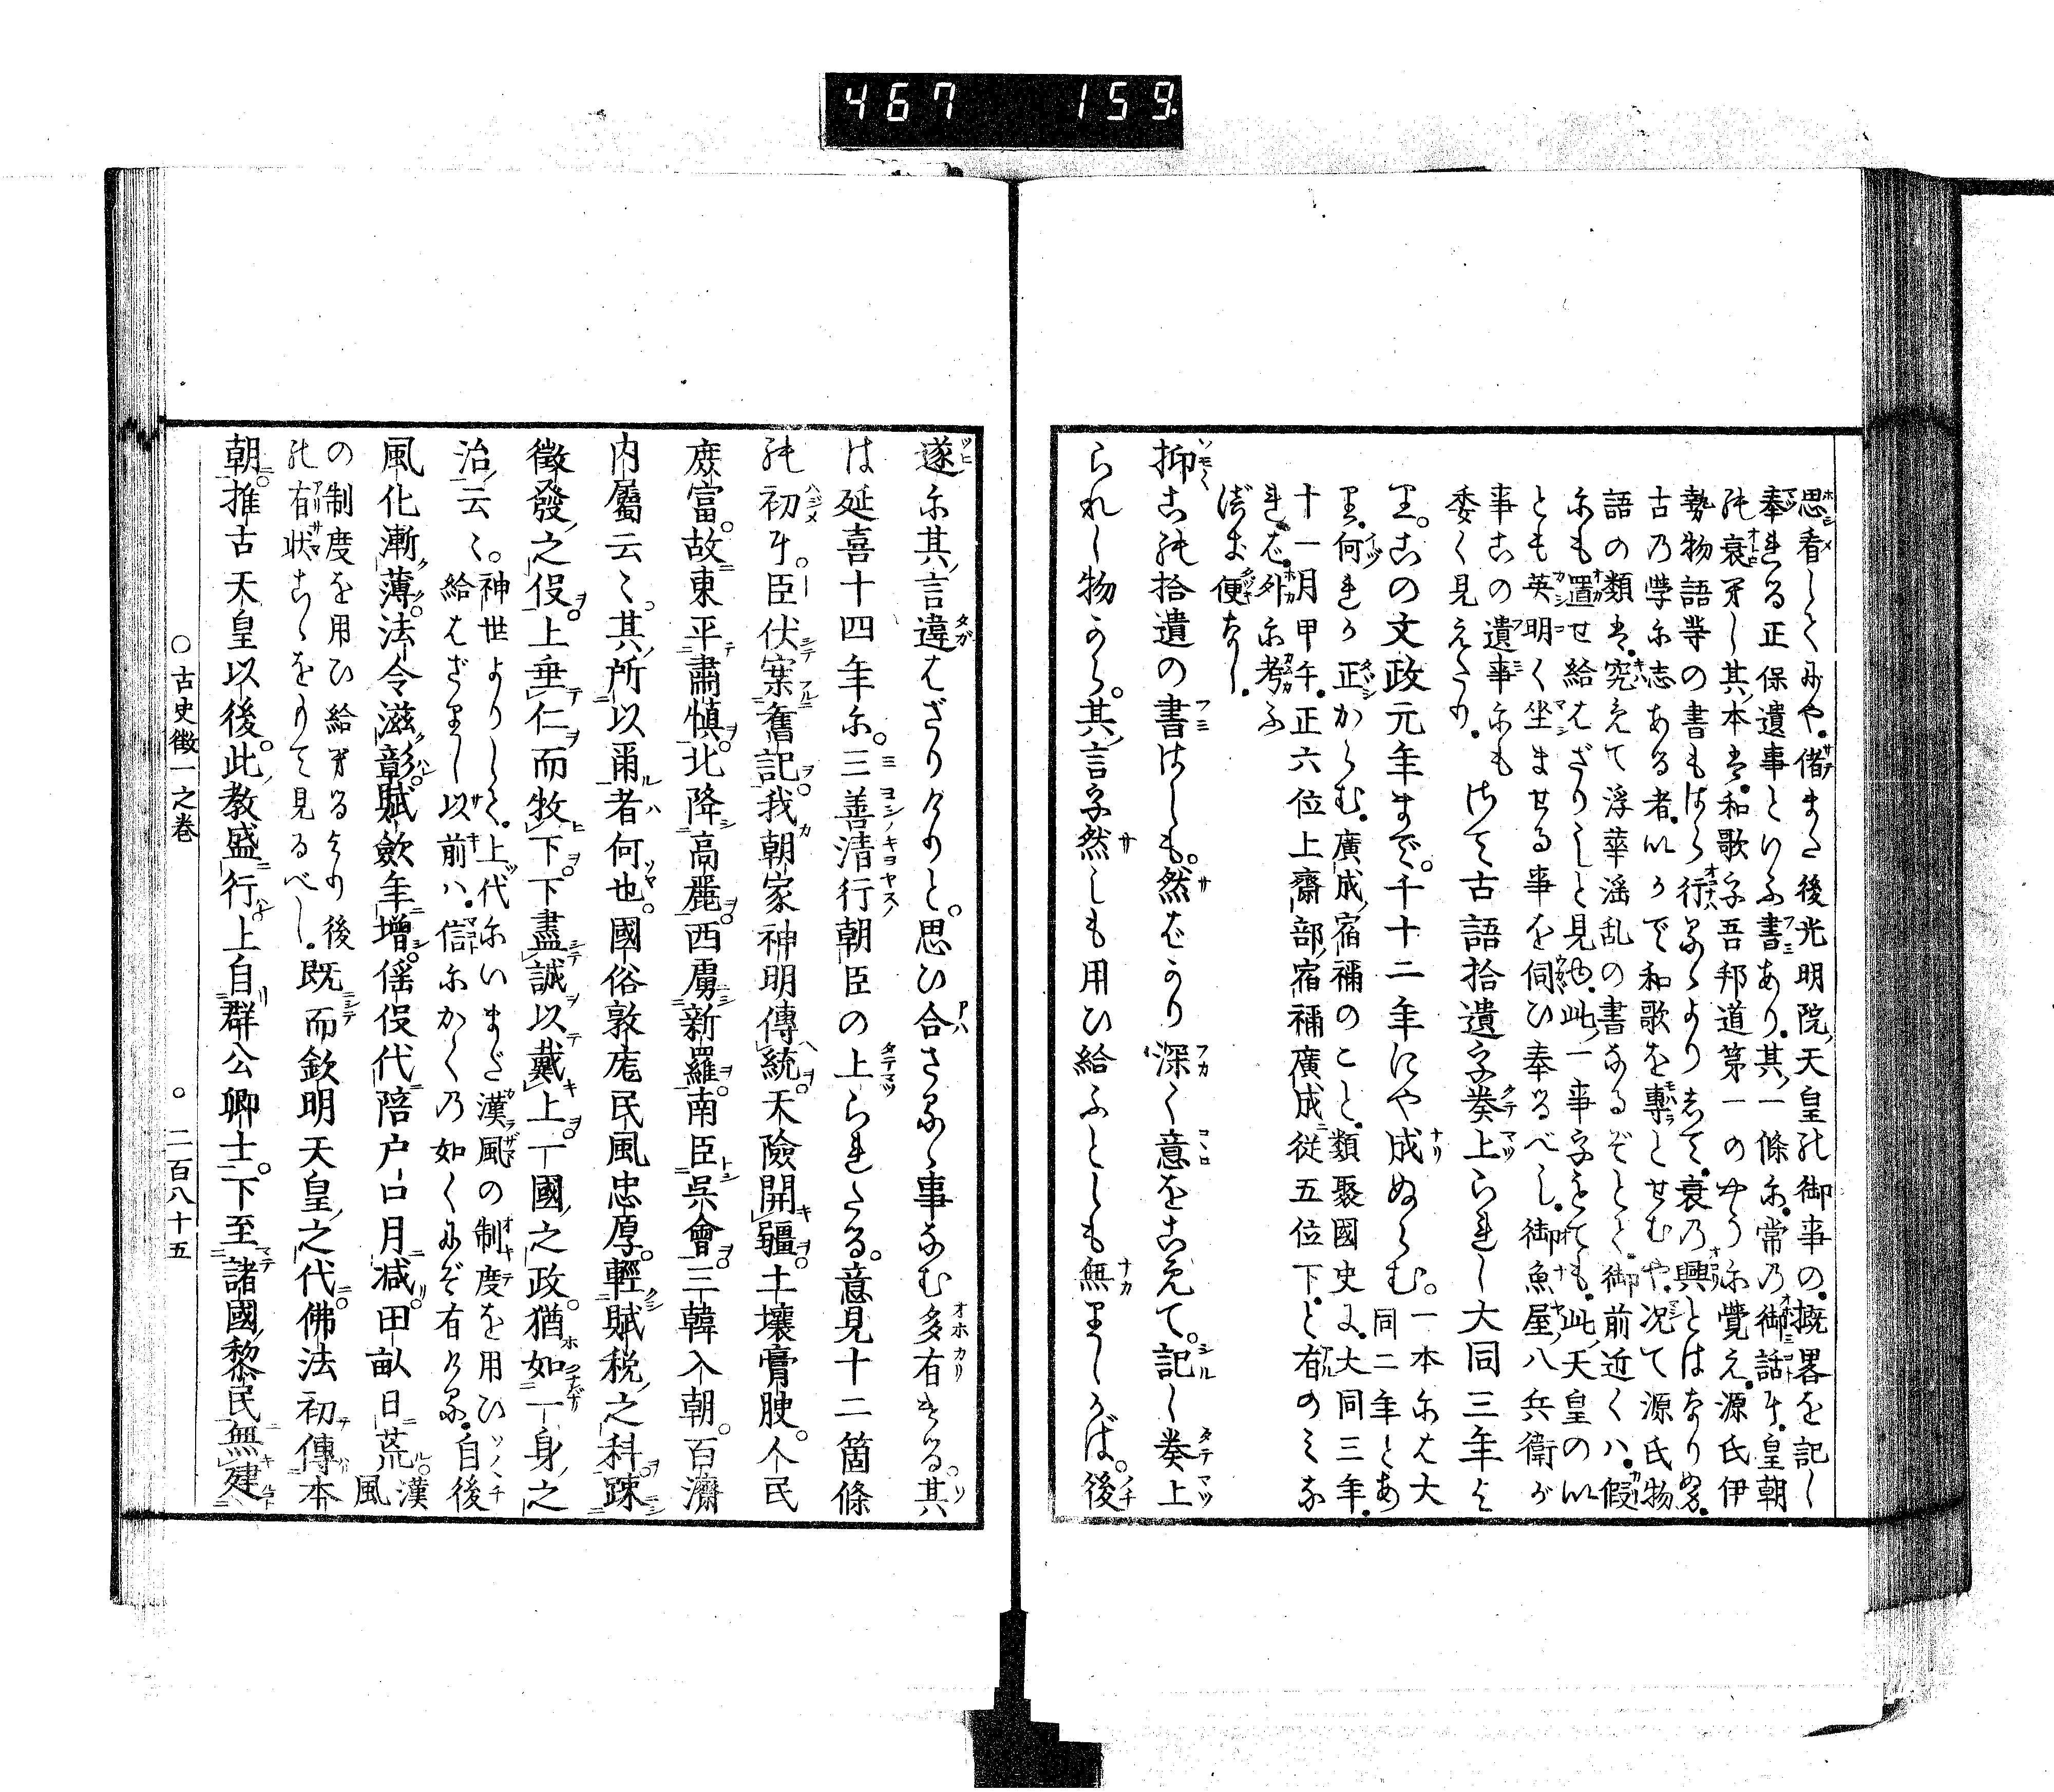 467 159
思看してにや。偖また後光明院天皇の御事の。概畧を記し
奉れる正保遺事といふ書あり。其一條に。常の御話に。皇朝
の衰へし其本は。和歌と吾邦道第一のやうに覺え。源氏伊
勢物語等の書もはら行はるゝより起て。衰の興とはなりぬる。
古の學に志ある者。いかで和歌を專とせむや。况て源氏物
語の類は。究めて浮華滛乱の書なるぞとて。御前近くハ。假
にも置せ給はざりしと見ゆ。此一事をとても。此天皇のい
とも英明く坐ませる事を伺ひ奉るべし。御魚屋八兵衛が
事この遺事にも
委く見えたり。
はて古語拾遺を奏上られし大同三年よ
り。この文政元年まで。千十二年にや成ぬらむ。
一本には大
同二年とあ
り。何れか正からむ。廣成宿禰のこと。類聚國史に。大同三年。
十一月甲午。正六位上齋部宿禰廣成從五位下。と有のみな
れば。外に考ふ
べき便なし。
抑この拾遺の書はしも。然ばかり深く意をこめて。記し奏上
られし物から。其言を然しも用ひ給ふとしも無りしかば。後
遂に其言違はざりけりと。思ひ合さるゝ事なむ多有ける。其
は延喜十四年に。三善清行朝臣の上られたる。意見十二箇條
の初に。臣伏案舊記。我朝家神明傳統。天險開疆。土壤膏腴。人民
庶富。故東平肅愼。北降高麗。西虜新羅。南臣呉會。三韓入朝。百濟
内屬云々。其所以爾者何也。國俗敦庬民風忠厚。輕賦税之科。踈
徵發之役。上垂仁而牧下。下盡誠以戴上。一國之政。猶如一身之
治云々。
神世よりして。上代にいまだ漢風の制度を用ひ
給はざりし以前ハ。信にかくの如くにぞ有ける。
自後
風化漸薄。法令滋彰。賦斂年增。徭役代陪。戸口月减。田畝日荒。
漢
風
の制度を用ひ給へるより後
の有状こゝをもて見るべし。
既而欽明天皇之代。佛法初傳本
朝。推古天皇以後。此教盛行。上自群公卿士。下至諸國黎民。無建
○古史徴一之巻 ○ 二百八十五